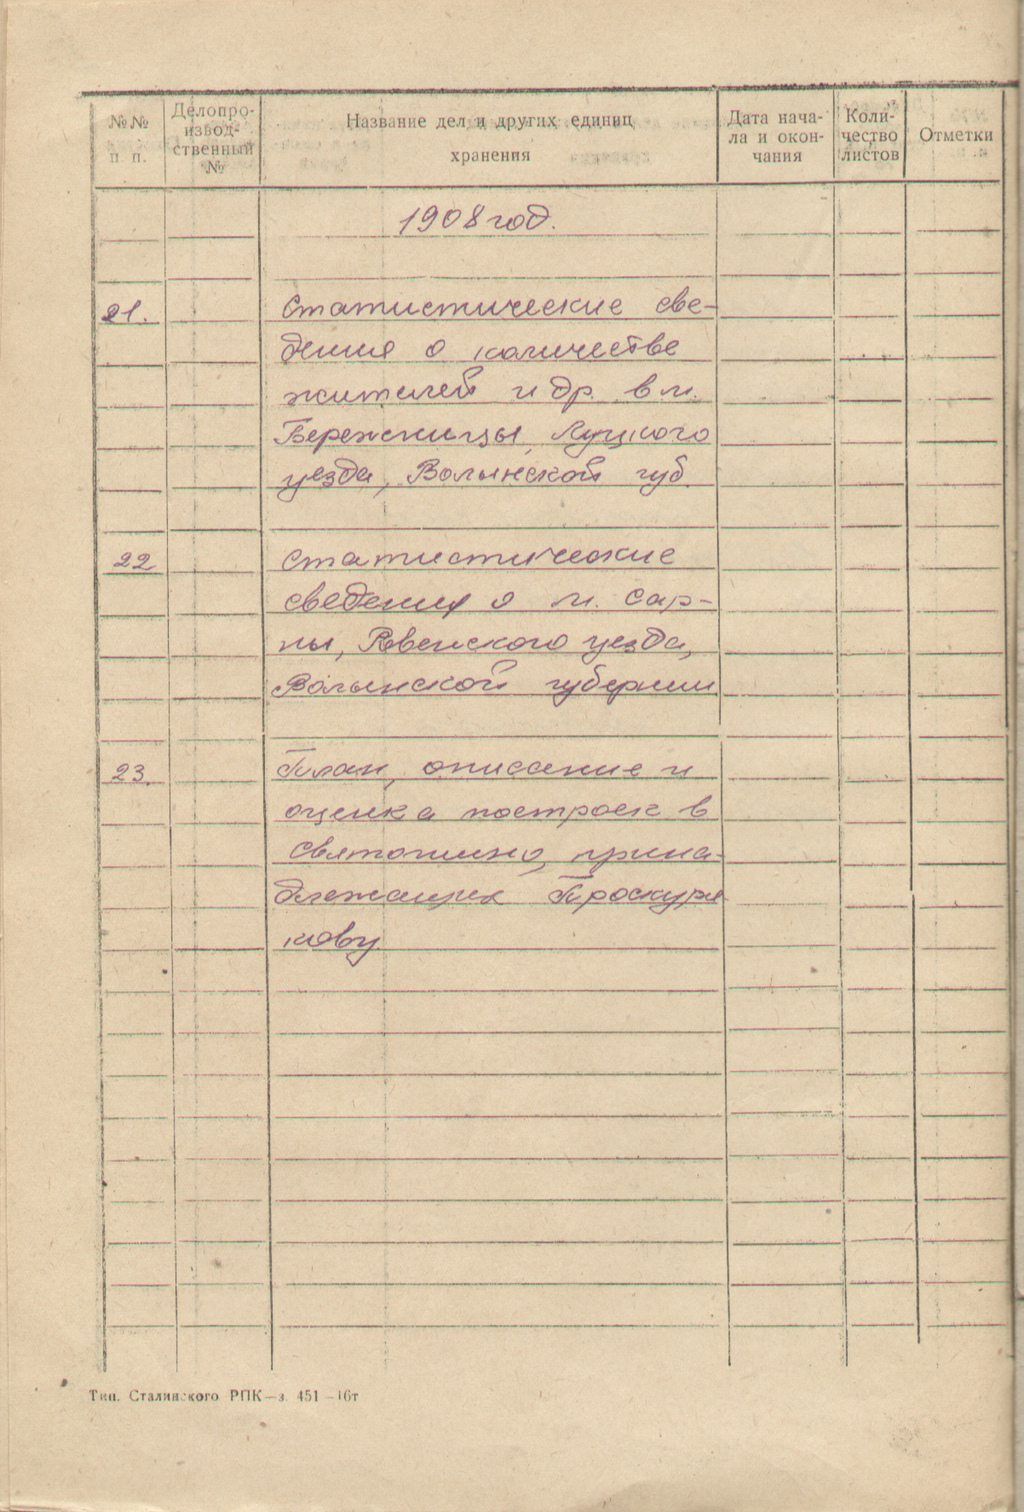 №№ п. п.
Делопро-
извод-
ственный
№
Название дел и других единиц
хранения
Дата нача-
ла и окон-
чания
Коли-
чество
листов
Отметки
1908 год.
21.
Статистические све-
дения о количестве
жителей и др. в м.
Бережницы, Луцкого
уезда, Волынской губ.
22
Статистические
сведения о м. Сар-
ны, Ровенского уезда,
Волынской губернии
23.
План, описание и
оценка построек в
Святошино, прина-
длежащих Проскуря
кову
Тип. Сталинского РПК—з. 451 —16т